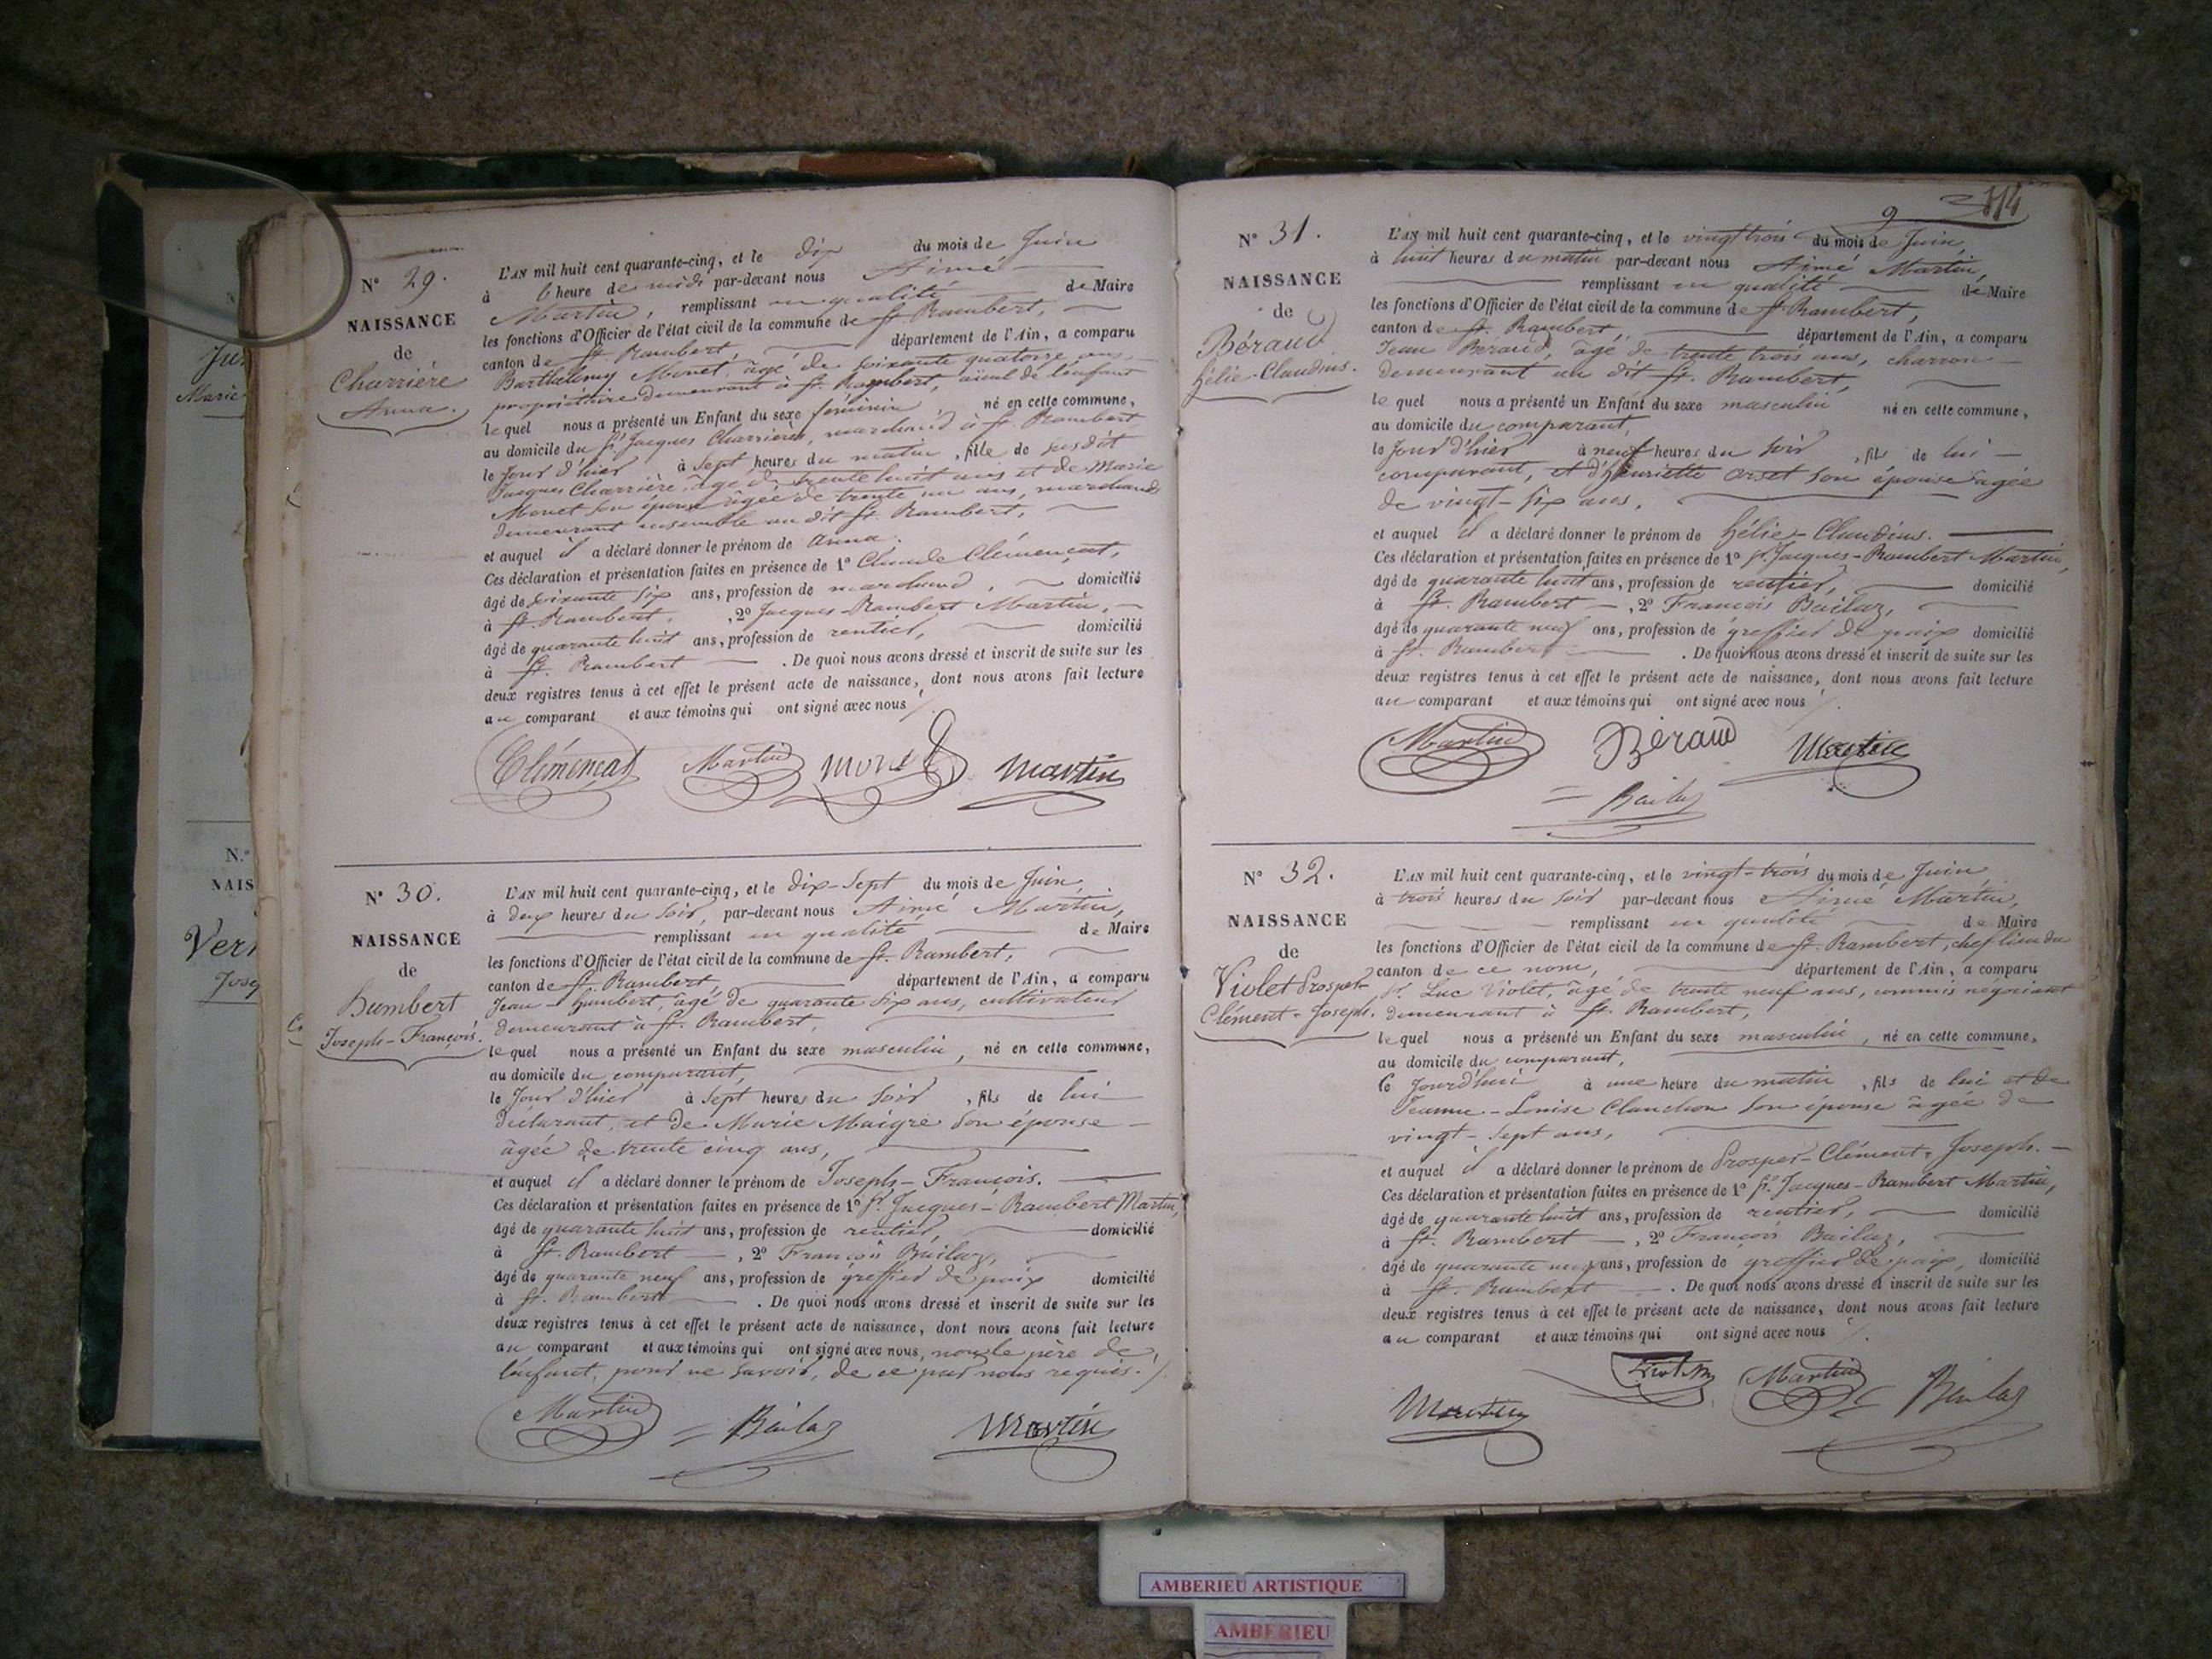 N° 29.
NAISSANCE
de
Charrière
Anna.
L'AN mil huit cent quarante-cinq, et le dix du mois de Juin
à l'heure de midi par-devant nous Aimé
Martin, remplissant en qualité de Maire
les fonctions d'Officier de l'état civil de la commune de St. Rambert,
canton de St. Rambert, département de l'Ain, a comparu
Barthelemy Monet, âgé de soixante quatorze ans,
propriétaire demeurant à St. Rambert, aïeul de l'enfant
lequel nous a présenté un Enfant du sexe féminin né en cette commune,
au domicile du Sr. Jacques Charrière, marchand à St. Rambert
le Jour d'hier à sept heures du matin, fille de susdit
Jacques Charrière, âgé de trente huit ans et de Marie
Monet son épouse âgée de trente un ans, marchands
demeurant ensemble au dit St. Rambert,
et auquel il a déclaré donner le prénom de Anna.
Ces déclaration et présentation faites en présence de 1° Claude Clémençat,
âgé de soixante six ans, profession de marchand, domicilié
à St. Rambert, 2° Jacques-Rambert Martin,
âgé de quarante huit ans, profession de rentier, domicilié
à St. Rambert. De quoi nous avons dressé et inscrit de suite sur les
deux registres tenus à cet effet le présent acte de naissance, dont nous avons fait lecture
au comparant et aux témoins qui ont signé avec nous
Clémençat Martin Monet Martin
N° 30.
NAISSANCE
de
humbert
Joseph-François.
L'AN mil huit cent quarante-cinq, et le dix-Sept du mois de Juin,
à deux heures du soir, par-devant nous Aimé Martin,
remplissant en qualité de Maire
les fonctions d'Officier de l'état civil de la commune de St. Rambert,
canton de St. Rambert, département de l'Ain, a comparu
Jean humbert, âgé de quarante six ans, cultivateur
demeurant à St. Rambert,
lequel nous a présenté un Enfant du sexe masculin, né en cette commune,
au domicile du comparant,
le Jour d'hier à sept heures du soir, fils de lui
déclarant, et de Marie Maigre son épouse
âgée de trente cinq ans,
et auquel il a déclaré donner le prénom de Joseph-François.
Ces déclaration et présentation faites en présence de 1° Sr. Jacques-Rambert Martin,
âgé de quarante huit ans, profession de rentier, domicilié
à St. Rambert, 2° François Bailaz,
âgé de quarante neuf ans, profession de greffier de paix domicilié
à St. Rambert. De quoi nous avons dressé et inscrit de suite sur les
deux registres tenus à cet effet le présent acte de naissance, dont nous avons fait lecture
au comparant et aux témoins qui ont signé avec nous, non le père de
l'enfant, pour ne savoir, de ce par nous requis.
Martin Bailaz Martin
114
9
N° 31.
NAISSANCE
de
Béraud
hélie-Claudius.
L'AN mil huit cent quarante-cinq, et le vingt trois du mois de Juin
à huit heures du matin par-devant nous Aimé Martin,
remplissant en qualité de Maire
les fonctions d'Officier de l'état civil de la commune de St. Rambert,
canton de St. Rambert, département de l'Ain, a comparu
Jean Béraud, âgé de trente trois ans, charron
demeurant au dit St. Rambert,
lequel nous a présenté un Enfant du sexe masculin né en cette commune,
au domicile du comparant,
le Jour d'hier à neuf heures du soir, fils de lui
comparant, et d'henriette Orset son épouse âgée
de vingt-six ans,
et auquel il a déclaré donner le prénom de hélie-Claudius.
Ces déclaration et présentation faites en présence de 1° Sr. Jacques-Rambert Martin,
âgé de quarante huit ans, profession de rentier, domicilié
à St. Rambert, 2° François Bailaz,
âgé de quarante neuf ans, profession de greffier de paix domicilié
à St. Rambert. De quoi nous avons dressé et inscrit de suite sur les
deux registres tenus à cet effet le présent acte de naissance, dont nous avons fait lecture
au comparant et aux témoins qui ont signé avec nous
Martin Béraud Martin
Bailaz
N° 32.
NAISSANCE
de
Violet Prosper-
Clément-Joseph.
L'AN mil huit cent quarante-cinq, et le vingt-trois du mois de Juin,
à trois heures du soir par-devant nous Aimé Martin,
remplissant en qualité de Maire
les fonctions d'Officier de l'état civil de la commune de St. Rambert, chef lieu du
canton de ce nom, département de l'Ain, a comparu
Sr. Luc Violet, âgé de trente neuf ans, commis négociant
demeurant à St. Rambert,
lequel nous a présenté un Enfant du sexe masculin, né en cette commune,
au domicile du comparant,
le Jourd'hui à une heure du matin, fils de lui et de
Jeanne-Louise Clanchon son épouse âgée de
vingt-sept ans,
et auquel il a déclaré donner le prénom de Prosper-Clément-Joseph.
Ces déclaration et présentation faites en présence de 1° Sr. Jacques-Rambert Martin,
âgé de quarante huit ans, profession de rentier, domicilié
à St. Rambert, 2° François Bailaz,
âgé de quarante neuf ans, profession de greffier de paix, domicilié
à St. Rambert. De quoi nous avons dressé et inscrit de suite sur les
deux registres tenus à cet effet le présent acte de naissance, dont nous avons fait lecture
au comparant et aux témoins qui ont signé avec nous
Martin Martin Bailaz
N.°
NAIS
Vern
Jose
Marie
AMBERIEU ARTISTIQUE
AMBERIEU